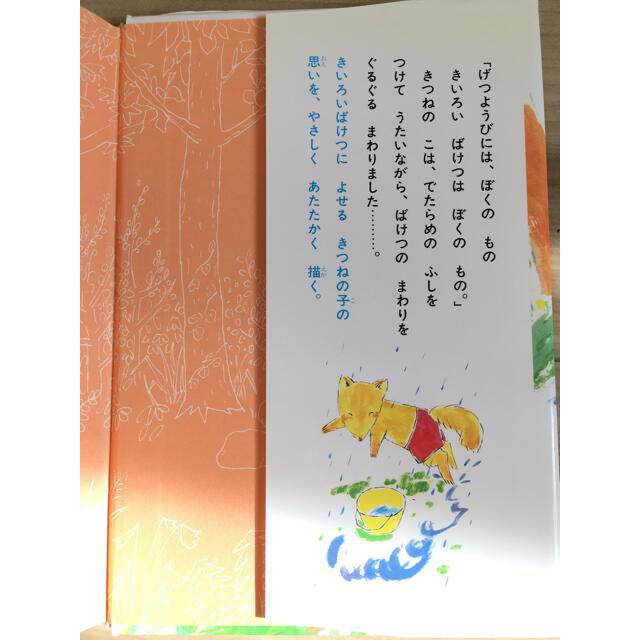 「げつようびには、ぼくの もの
きいろい ばけつは ぼくの もの。」
きつねの こは、でたらめの ふしを
つけて うたいながら、ばけつの まわりを
ぐるぐる まわりました………。
きいろいばけつに よせる きつねの子の
思いを、やさしく あたたかく 描く。